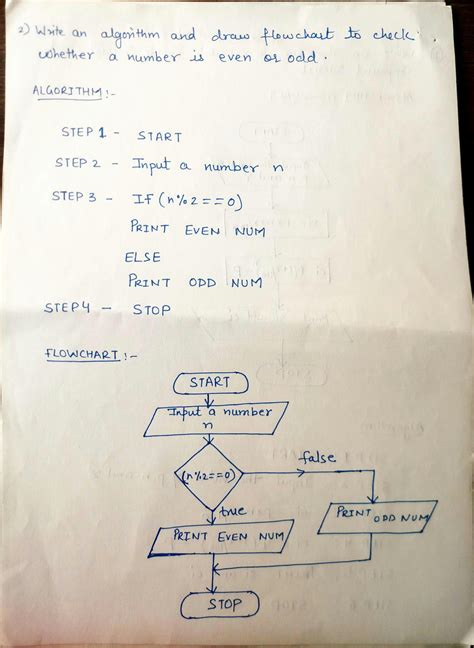 2) Write an algorithm and draw flowchart to check
whether a number is even or odd.
ALGORITHM:-
STEP 1 - START
STEP 2 - Input a number n
STEP 3 - IF (n%2==0)
PRINT EVEN NUM
ELSE
PRINT ODD NUM
STEP4 - STOP
FLOWCHART:-
START
Input a number
n
(n%2==0)
false
true
PRINT EVEN NUM
PRINT ODD NUM
STOP